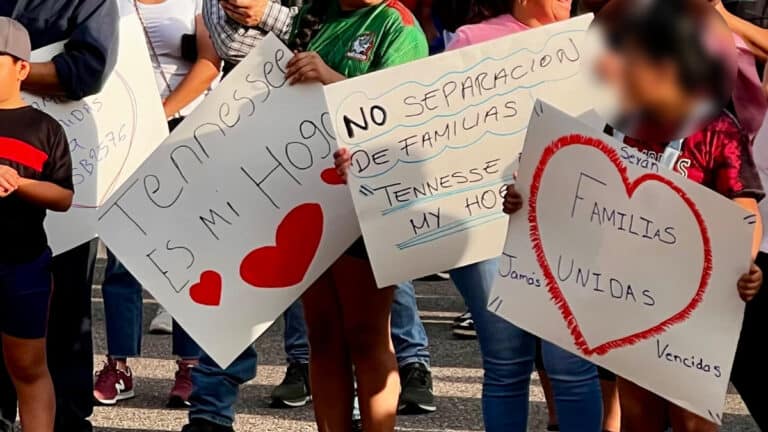 SB2576
Tennessee
ES Mi Hogar
NO SEPARACION
DE FAMILIAS
"TENNESSE
MY HOG
FAMILIAS
UNIDAS
Seyan
Jamás
Vencidas